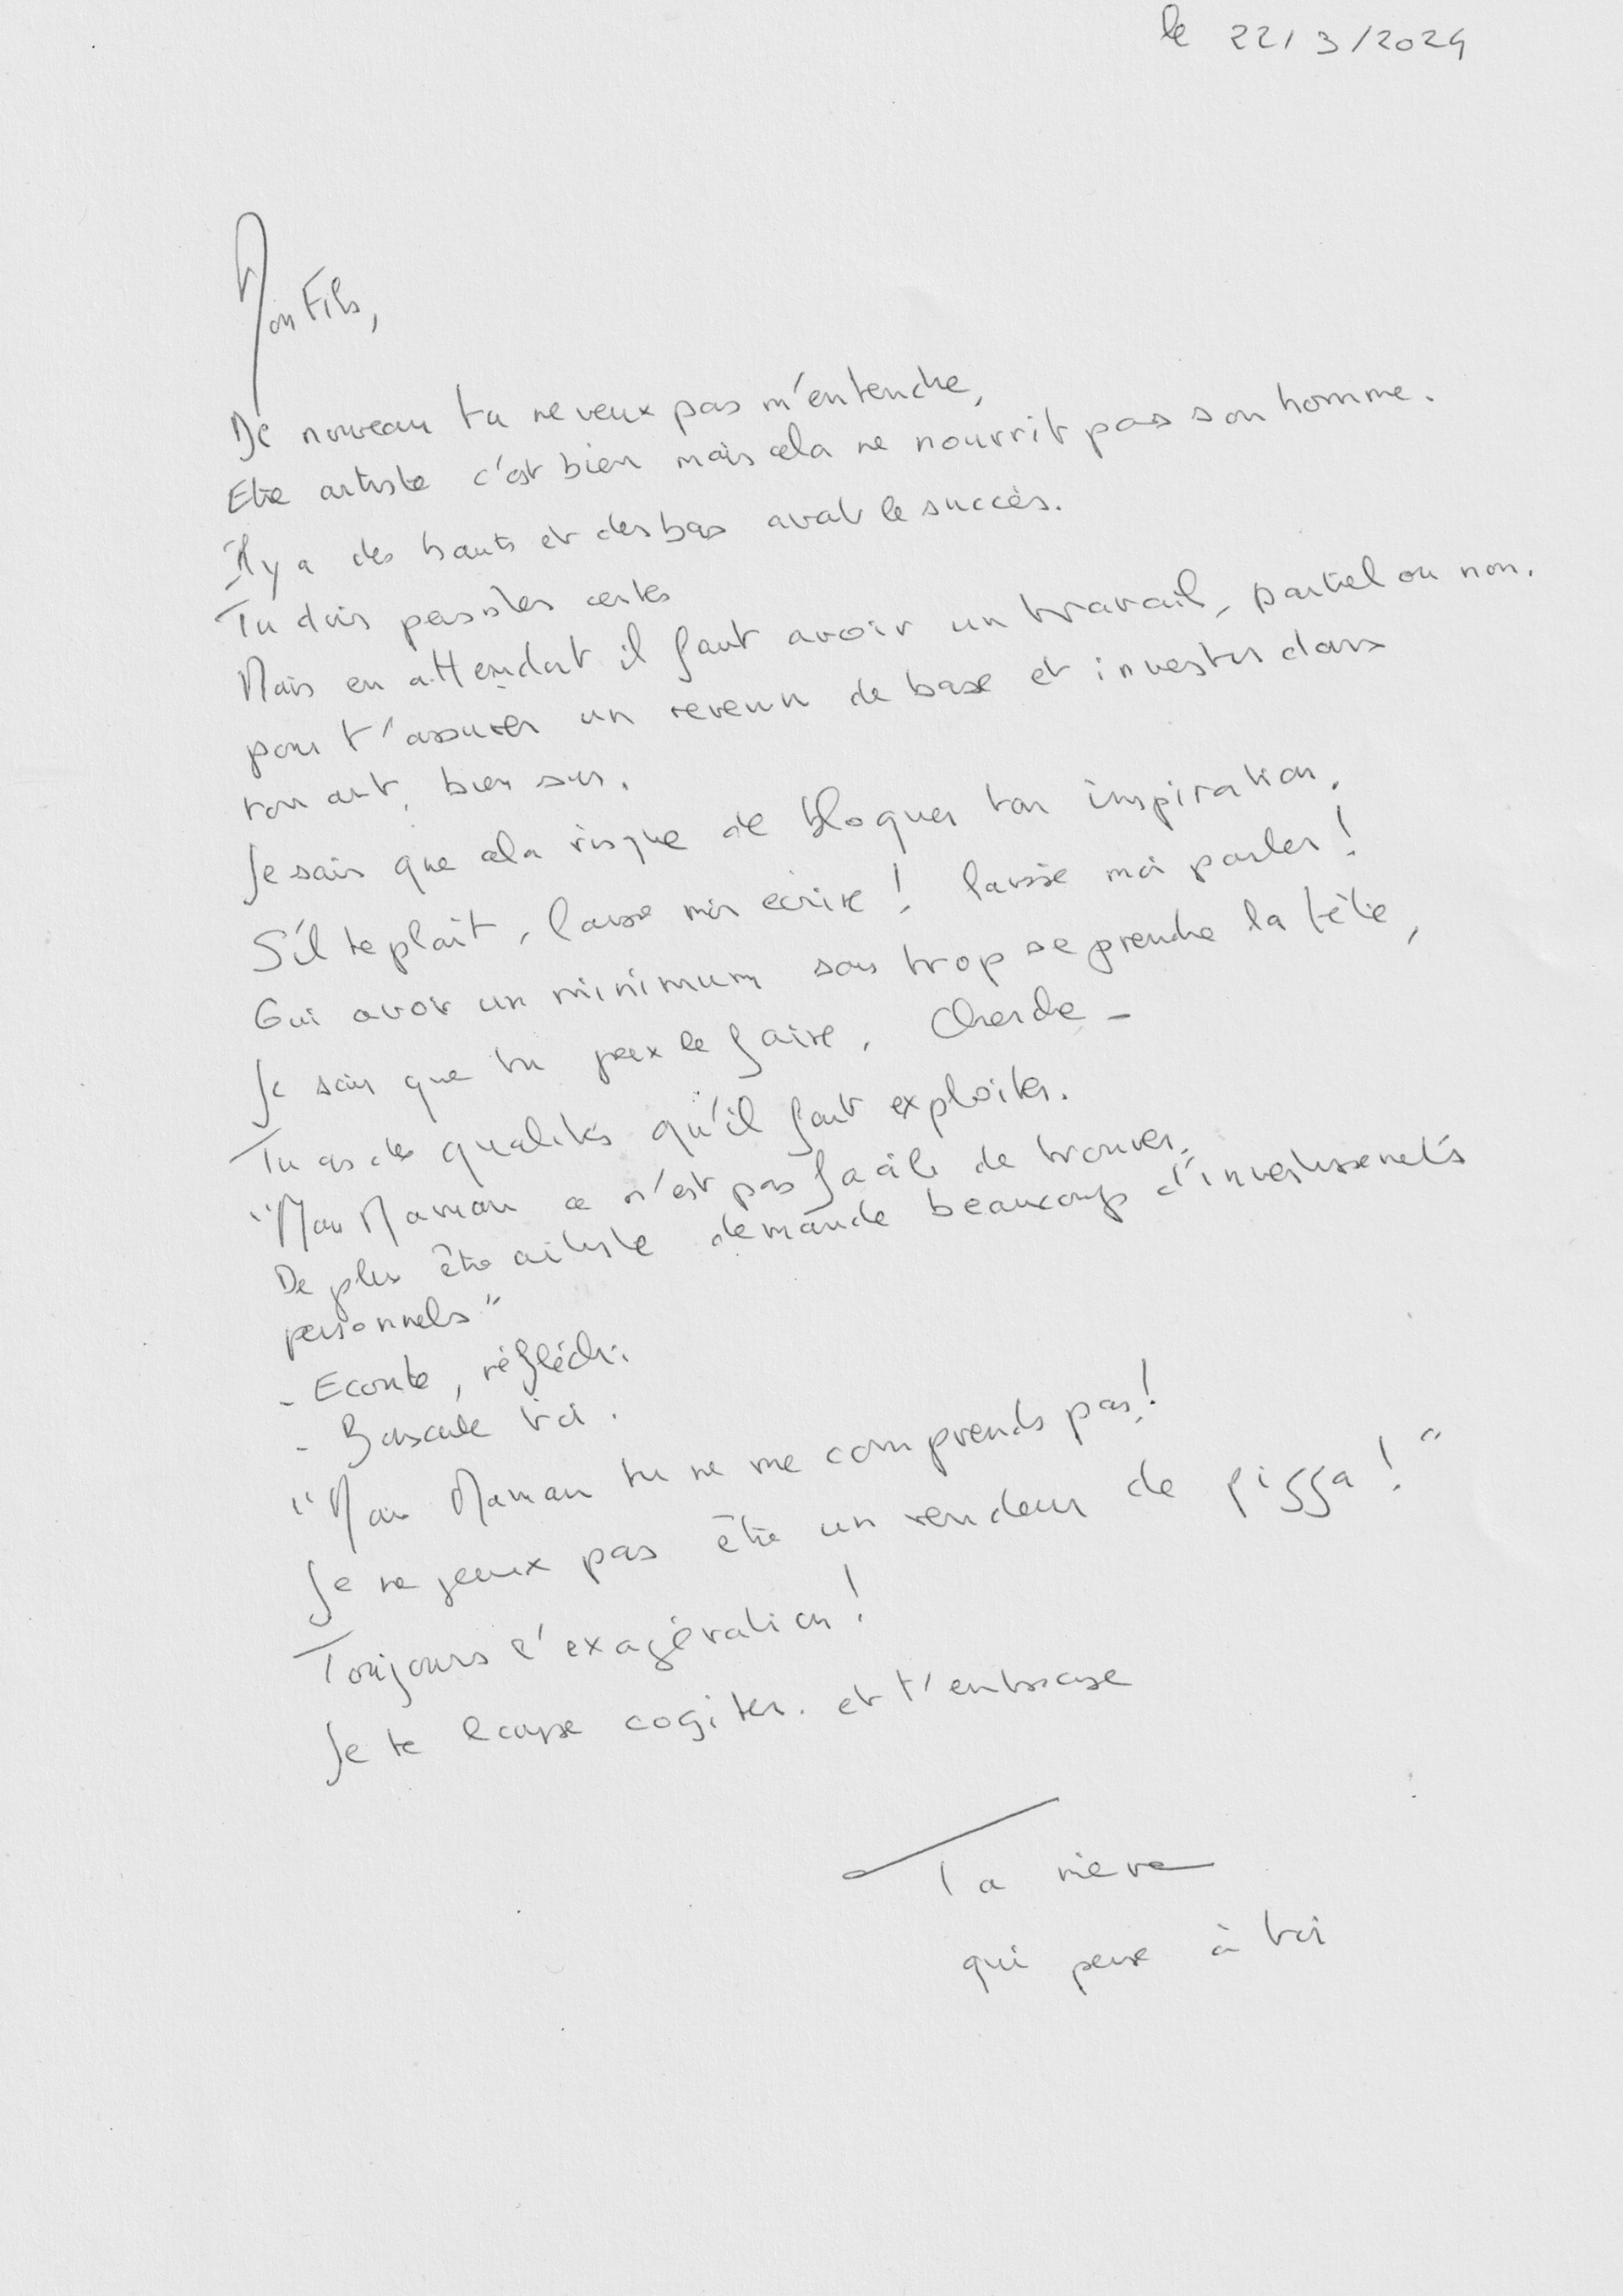 le 22/3/2024
Mon Fils,
De nouveau tu ne veux pas m'entendre,
Etre artiste c'est bien mais cela ne nourrit pas son homme.
Il y a des hauts et des bas avant le succès.
Tu dois persister certes
Mais en attendant il faut avoir un travail, partiel ou non.
pour t'assurer un revenu de base et investir dans
ton art, bien sur.
Je sais que cela risque de bloquer ton inspiration.
S'il te plaît, laisse moi écrire ! laisse moi parler !
Oui avoir un minimum sans trop se prendre la tête,
Je sais que tu peux le faire, Cherche -
Tu as des qualités qu'il faut exploiter.
"Mais Maman ce n'est pas facile de trouver.
De plus être artiste demande beaucoup d'investissements
personnels"
- Ecoute, réfléchi.
- Bouscule toi.
"Mais Maman tu ne me comprends pas !
Je ne peux pas être un vendeur de pizza ! "
Toujours l'exagération !
Je te laisse cogiter. et t'embrasse
Ta mère
qui pense à toi